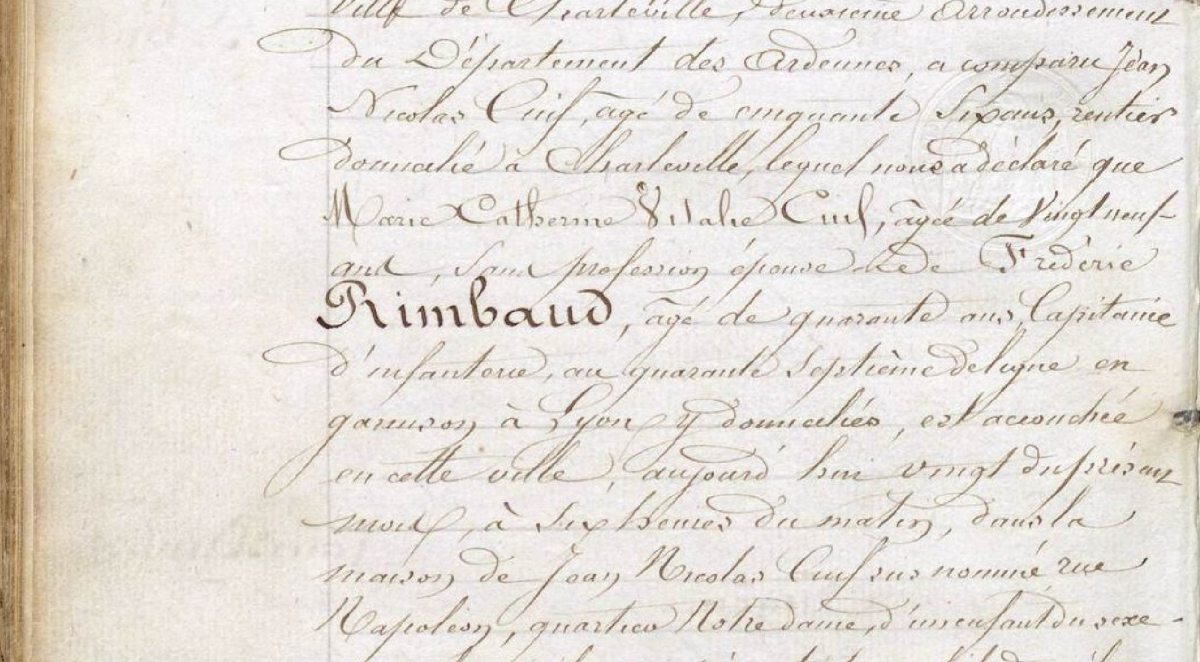 ville de Charleville, deuxième arrondissement
du Département des Ardennes, a comparu Jean
Nicolas Cuif, agé de cinquante Six ans, rentier
domicilié à Charleville, lequel nous a déclaré que
Marie Catherine Vitalie Cuif, âgée de Vingt neuf
ans, sans profession épouse de Frédéric
Rimbaud, âgé de quarante ans, Capitaine
d'infanterie, au quarante Septième de ligne en
garnison à Lyon y domiciliés, est accouchée
en cette ville, aujourd'hui vingt du présent
mois, à Six heures du matin, dans la
maison de Jean Nicolas Cuif sus nommé rue
Napoléon, quartier Notre dame, d'un enfant du sexe